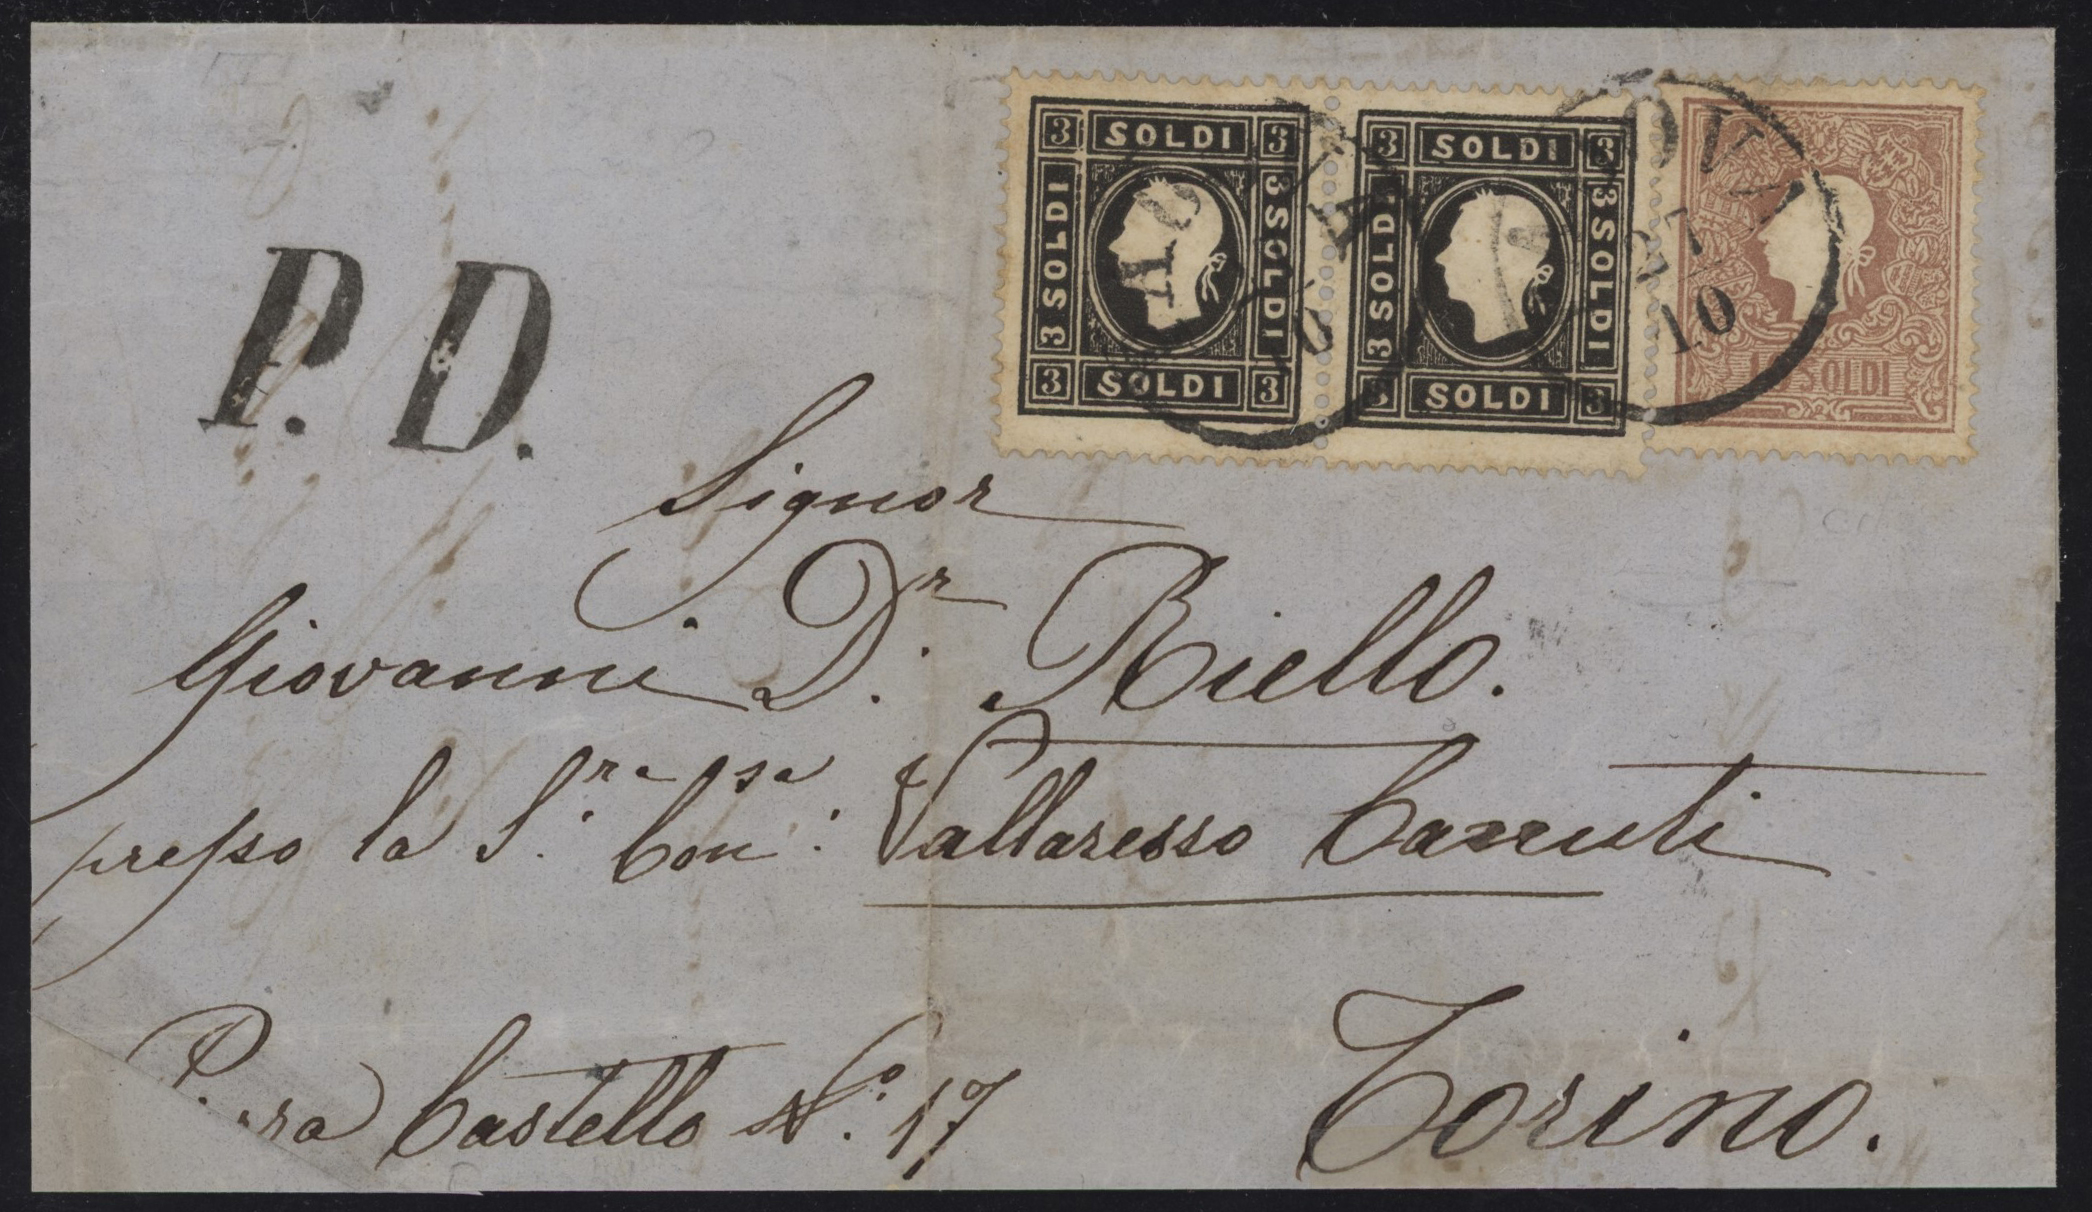 3 SOLDI 3 3 SOLDI 3
3 SOLDI 3 SOLDI 3 SOLDI 3 SOLDI
3 SOLDI 3 3 SOLDI 3
10 SOLDI
10
P. D.
Signor
Giovanni D.r Riello.
presso la S.ra Con.sa Vallaresso
Castello N.o 17
Torino.